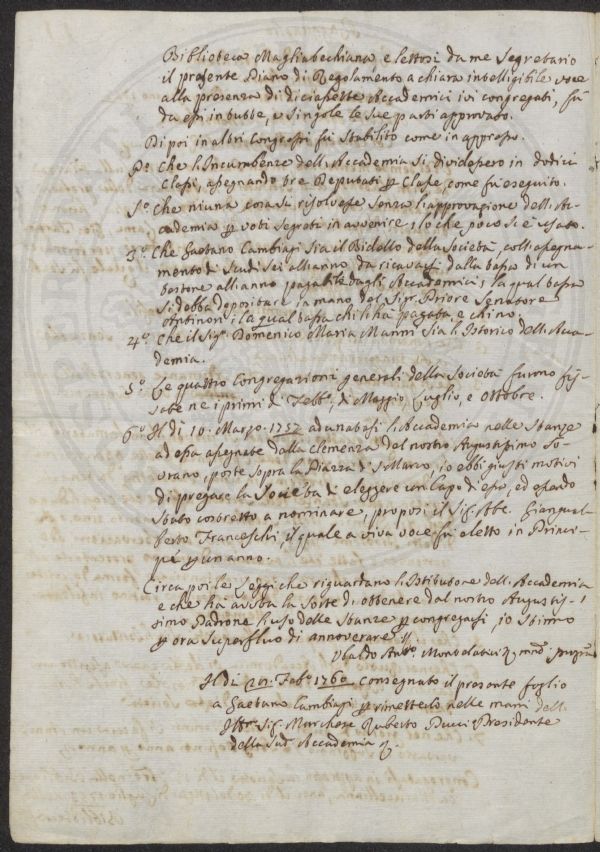 Biblioteca Magliabechiana, e lettosi da me Segretario
il presente Piano di Regolamento a chiara intelligibile voce
alla presenza di diciasette Accademici ivi congregati, fù
da essi in tutte, e singole le sue parti approvato.
Di poi in altri Congressi fù stabilito come in appresso.
P.º Che l'Incumbenze dell'Accademia si dividessero in dodici
Classi, assegnando tre Deputati p Classe, come fù eseguito.
S.º Che niuna cosa si risolvesse senza l'approvazione dell'Ac-
cademia p voti segreti in avvenire, lo che poco si è usato.
3.º Che Gaetano Cambiagi sia il Bidello della Società, coll'assegna-
mento di scudi sei all'anno da ricavarsi dalla tassa di un
testone all'anno pagabile dagli Accademici; la qual tassa
si debba depositare in mano del Sigr. Priore Senatore
la qual tassa chi l'ha pagata, e chi nò.
4.º Che il Sigr. Domenico Maria Manni sia l'Istorico dell'Acca-
demia.
5.º Le quattro Congregazioni generali della Società furono fis-
sate ne i primi di Febb.º, di Maggio, Luglio, e Ottobre.
6.º Il dì 10. Marzo 1757 adunatasi l'Accademia nelle Stanze
ad essa assegnate dalla clemenza del nostro Augustissimo So-
vrano, poste sopra la Piazza di S. Marco, io ebbi giusti motivi
di pregare la Società di eleggere un Capo di essa, ed essendo
stato costretto a nominare, proposi il Sig. Abe. Giangual-
berto Franceschi, il quale a viva voce fù eletto in Princi-
pe p un anno.
Circa poi le Leggi che riguardano l'Istituzione dell'Accademia
e che ha avuta la sorte di ottenere dal nostro Augustis-
simo Padrone l'uso delle Stanze p congregarsi, io stimo
p ora superfluo di annoverare //
Ubaldo Montelatici
Il dì 21. Feb.º 1760 consegnato il presente foglio
a Gaetano Cambiagi p rimetterlo nelle mani dell'
Ill.mo Sig. Marchese Ruberto Pucci Presidente
della Sud.ª Accademia